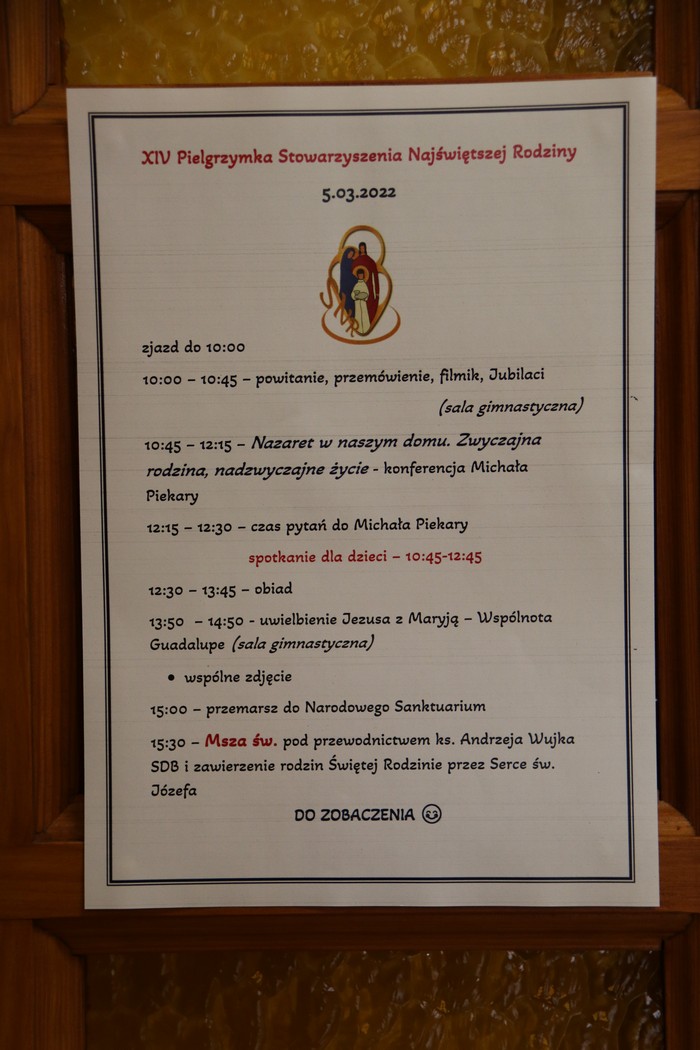 XIV Pielgrzymka Stowarzyszenia Najświętszej Rodziny
5.03.2022
SNR
zjazd do 10:00
10:00 – 10:45 – powitanie, przemówienie, filmik, Jubilaci
(sala gimnastyczna)
10:45 – 12:15 – Nazaret w naszym domu. Zwyczajna
rodzina, nadzwyczajne życie - konferencja Michała
Piekary
12:15 – 12:30 – czas pytań do Michała Piekary
spotkanie dla dzieci – 10:45-12:45
12:30 – 13:45 – obiad
13:50 – 14:50 - uwielbienie Jezusa z Maryją – Wspólnota
Guadalupe (sala gimnastyczna)
• wspólne zdjęcie
15:00 – przemarsz do Narodowego Sanktuarium
15:30 – Msza św. pod przewodnictwem ks. Andrzeja Wujka
SDB i zawierzenie rodzin Świętej Rodzinie przez Serce św.
Józefa
DO ZOBACZENIA 😊